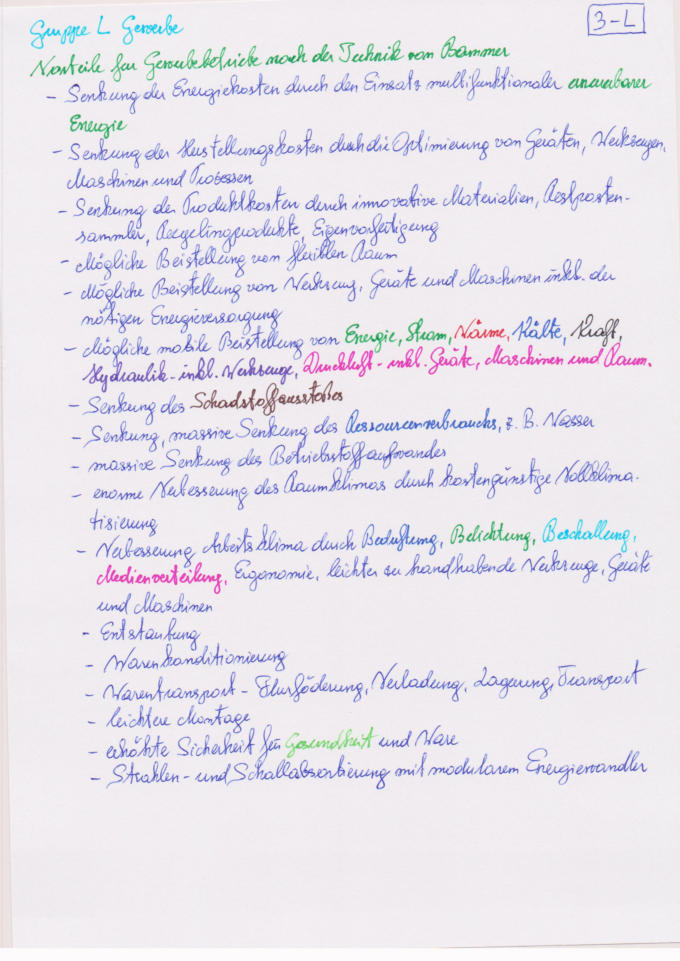 Gruppe L Gewerbe
3-L
Vorteile für Gewerbebetriebe nach der Technik von Bammer
- Senkung der Energiekosten durch den Einsatz multifunktionaler erneuerbarer
Energie
- Senkung der Herstellungskosten durch die Optimierung von Geräten, Werkzeugen,
Maschinen und Prozessen
- Senkung der Produktkosten durch innovative Materialien, Restposten-
sammler, Recyclingprodukte, Eigenvorfertigung
- Mögliche Beistellung von flexiblen Raum
- Mögliche Beistellung von Werkzeug, Geräte und Maschinen inkl. der
nötigen Energieversorgung
- Mögliche mobile Beistellung von Energie, Strom, Wärme, Kälte, Kraft,
Hydraulik - inkl. Werkzeuge, Druckluft - inkl. Geräte, Maschinen und Raum.
- Senkung des Schadstoffausstoßes
- Senkung, massive Senkung des Ressourcenverbrauchs, z. B. Wasser
- massive Senkung des Betriebsstoffaufwandes
- enorme Verbesserung des Raumklimas durch kostengünstige Vollklima-
tisierung
- Verbesserung Arbeitsklima durch Beduftung, Belichtung, Beschallung,
Medienverteilung, Ergonomie, leichter zu handhabende Werkzeuge, Geräte
und Maschinen
- Entstaubung
- Warenkonditionierung
- Warentransport - Flurförderung, Verladung, Lagerung, Transport
- leichtere Montage
- erhöhte Sicherheit für Gesundheit und Ware
- Strahlen- und Schallabsorbierung mit modularem Energiewandler